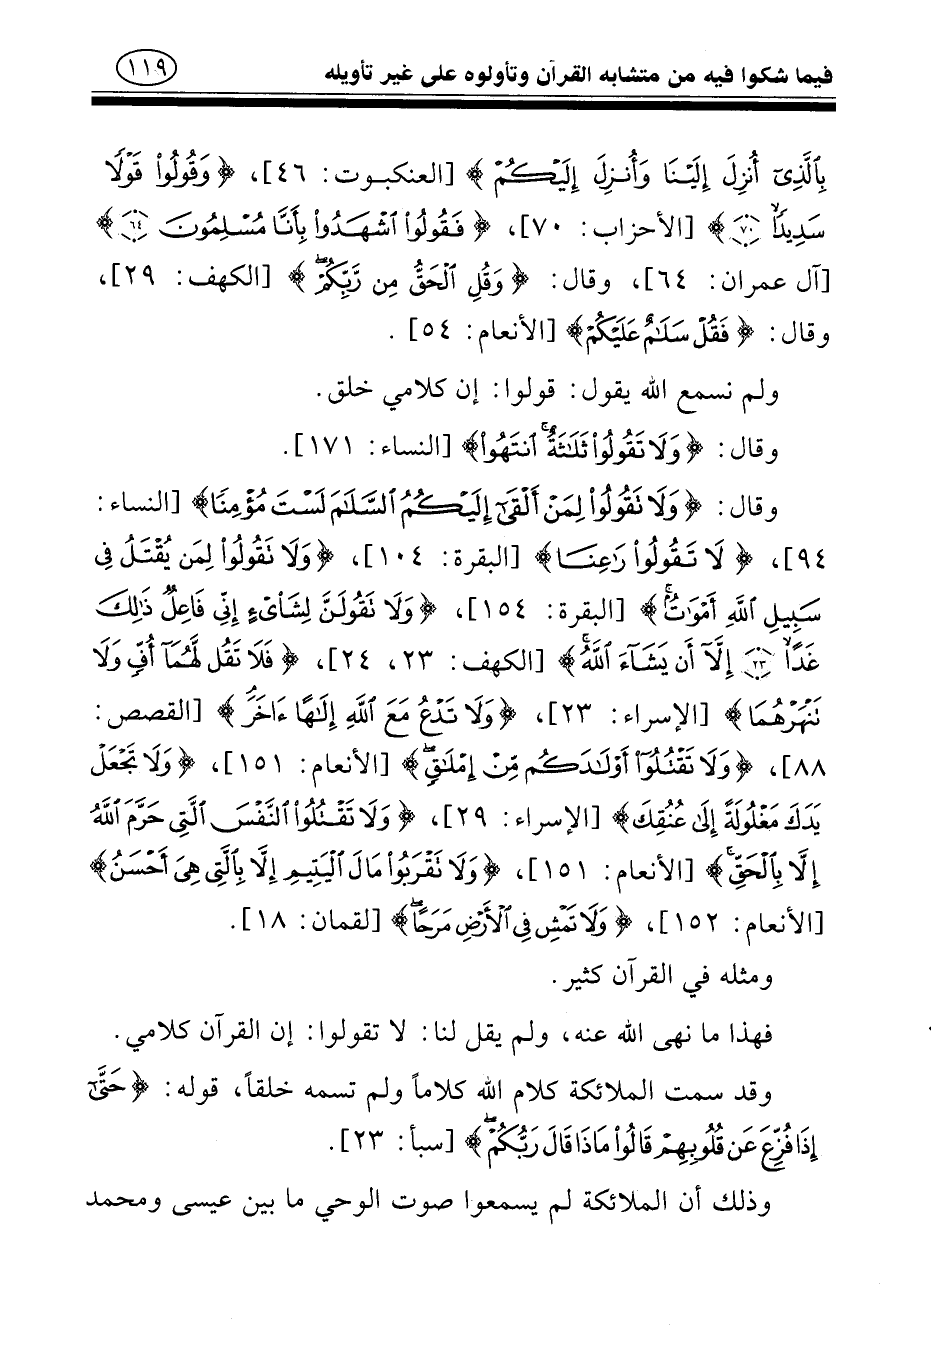 فيما شكوا فيه من متشابه القرآن وتأولوه على غير تأويله ١١٩
بِٱلَّذِىٓ أُنزِلَ إِلَيْنَا وَأُنزِلَ إِلَيْكُمْ ﴾ [العنكبوت: ٤٦]، ﴿ وَقُولُوا۟ قَوْلًا
سَدِيدًا ٧٠ ﴾ [الأحزاب: ٧٠]، ﴿ فَقُولُوا۟ ٱشْهَدُوا۟ بِأَنَّا مُسْلِمُونَ ٦٤ ﴾
[آل عمران: ٦٤]، وقال: ﴿ وَقُلِ ٱلْحَقُّ مِن رَّبِّكُمْ ۖ ﴾ [الكهف: ٢٩]،
وقال: ﴿ فَقُلْ سَلَٰمٌ عَلَيْكُمْ ﴾ [الأنعام: ٥٤] .
ولم نسمع الله يقول: قولوا: إن كلامي خلق.
وقال: ﴿ وَلَا تَقُولُوا۟ ثَلَٰثَةٌ ۚ ٱنتَهُوا۟ ﴾ [النساء: ١٧١].
وقال: ﴿ وَلَا تَقُولُوا۟ لِمَنْ أَلْقَىٰٓ إِلَيْكُمُ ٱلسَّلَٰمَ لَسْتَ مُؤْمِنًا ﴾ [النساء:
٩٤]، ﴿ لَا تَقُولُوا۟ رَٰعِنَا ﴾ [البقرة: ١٠٤]، ﴿ وَلَا تَقُولُوا۟ لِمَن يُقْتَلُ فِى
سَبِيلِ ٱللَّهِ أَمْوَٰتٌۢ ۚ ﴾ [البقرة: ١٥٤]، ﴿ وَلَا تَقُولَنَّ لِشَا۟ىْءٍ إِنِّى فَاعِلٌ ذَٰلِكَ
غَدًا ٢٣ إِلَّآ أَن يَشَآءَ ٱللَّهُ ۚ ﴾ [الكهف: ٢٣، ٢٤]، ﴿ فَلَا تَقُل لَّهُمَآ أُفٍّ وَلَا
تَنْهَرْهُمَا ﴾ [الإسراء: ٢٣]، ﴿ وَلَا تَدْعُ مَعَ ٱللَّهِ إِلَٰهًا ءَاخَرَ ۘ ﴾ [القصص:
٨٨]، ﴿ وَلَا تَقْتُلُوٓا۟ أَوْلَٰدَكُم مِّنْ إِمْلَٰقٍ ۖ ﴾ [الأنعام: ١٥١]، ﴿ وَلَا تَجْعَلْ
يَدَكَ مَغْلُولَةً إِلَىٰ عُنُقِكَ ﴾ [الإسراء: ٢٩]، ﴿ وَلَا تَقْتُلُوا۟ ٱلنَّفْسَ ٱلَّتِى حَرَّمَ ٱللَّهُ
إِلَّا بِٱلْحَقِّ ۚ ﴾ [الأنعام: ١٥١]، ﴿ وَلَا تَقْرَبُوا۟ مَالَ ٱلْيَتِيمِ إِلَّا بِٱلَّتِى هِىَ أَحْسَنُ ﴾
[الأنعام: ١٥٢]، ﴿ وَلَا تَمْشِ فِى ٱلْأَرْضِ مَرَحًا ۖ ﴾ [لقمان: ١٨].
ومثله في القرآن كثير.
فهذا ما نهى الله عنه، ولم يقل لنا: لا تقولوا: إن القرآن كلامي.
وقد سمت الملائكة كلام الله كلاماً ولم تسمه خلقاً، قوله: ﴿ حَتَّىٰٓ
إِذَا فُزِّعَ عَن قُلُوبِهِمْ قَالُوا۟ مَاذَا قَالَ رَبُّكُمْ ۖ ﴾ [سبأ: ٢٣].
وذلك أن الملائكة لم يسمعوا صوت الوحي ما بين عيسى ومحمد